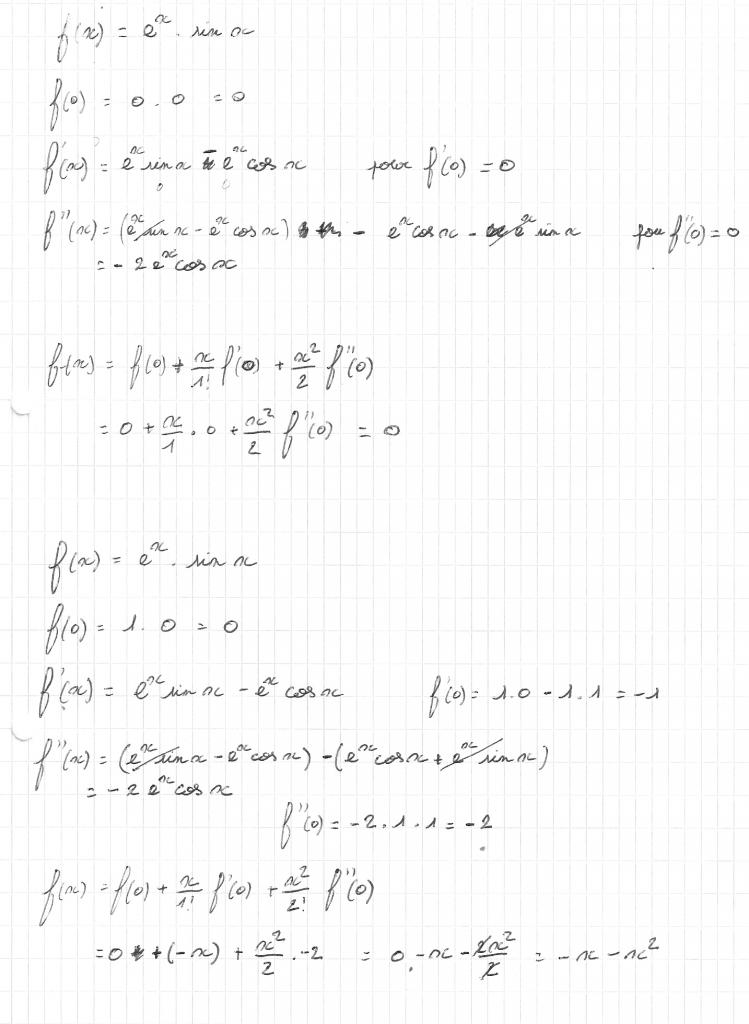 f(x) = eˣ . sin x
f(0) = 0 . 0 = 0
f'(x) = eˣ sin x - eˣ cos x pour f'(0) = 0
f''(x) = (eˣ sin x - eˣ cos x) - eˣ cos x - eˣ sin x pour f''(0) = 0
= - 2 eˣ cos x
f(x) = f(0) + x/1! f'(0) + x²/2 f''(0)
= 0 + x/1 . 0 + x²/2 f''(0) = 0
f(x) = eˣ . sin x
f(0) = 1 . 0 = 0
f'(x) = eˣ sin x - eˣ cos x f'(0) = 1.0 - 1.1 = -1
f''(x) = (eˣ sin x - eˣ cos x) - (eˣ cos x + eˣ sin x)
= - 2 eˣ cos x
f''(0) = -2 . 1 . 1 = -2
f(x) = f(0) + x/1! f'(0) + x²/2! f''(0)
= 0 + (-x) + x²/2 . -2 = 0 - x - 2x²/2 = - x - x²